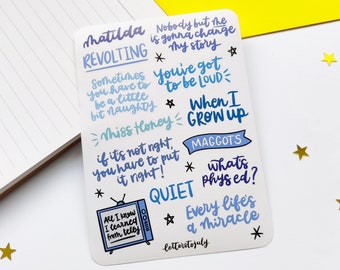 Matilda
Nobody but me
is gonna change
my story
REVOLTING
sometimes
you have to
be a little
bit naughty
you've got
to be LOUD
when I
GROW UP
Miss Honey
MAGGOTS
if it's not right,
you have to put
it right!
what's
phys ed?
QUIET
All I know
I learned
from telly
Every life's
a miracle
letterstojuly